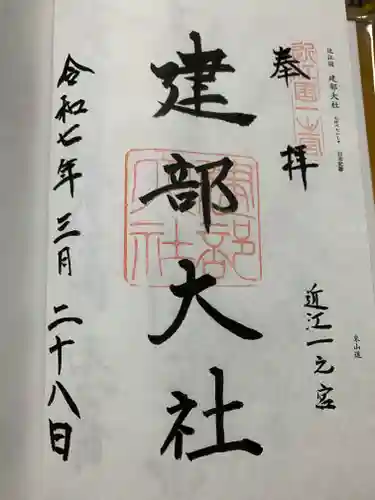 近江國 建部大社
東山道
奉拝
近江國一之宮
近江一之宮
建部大社
建部大社
令和七年三月二十八日